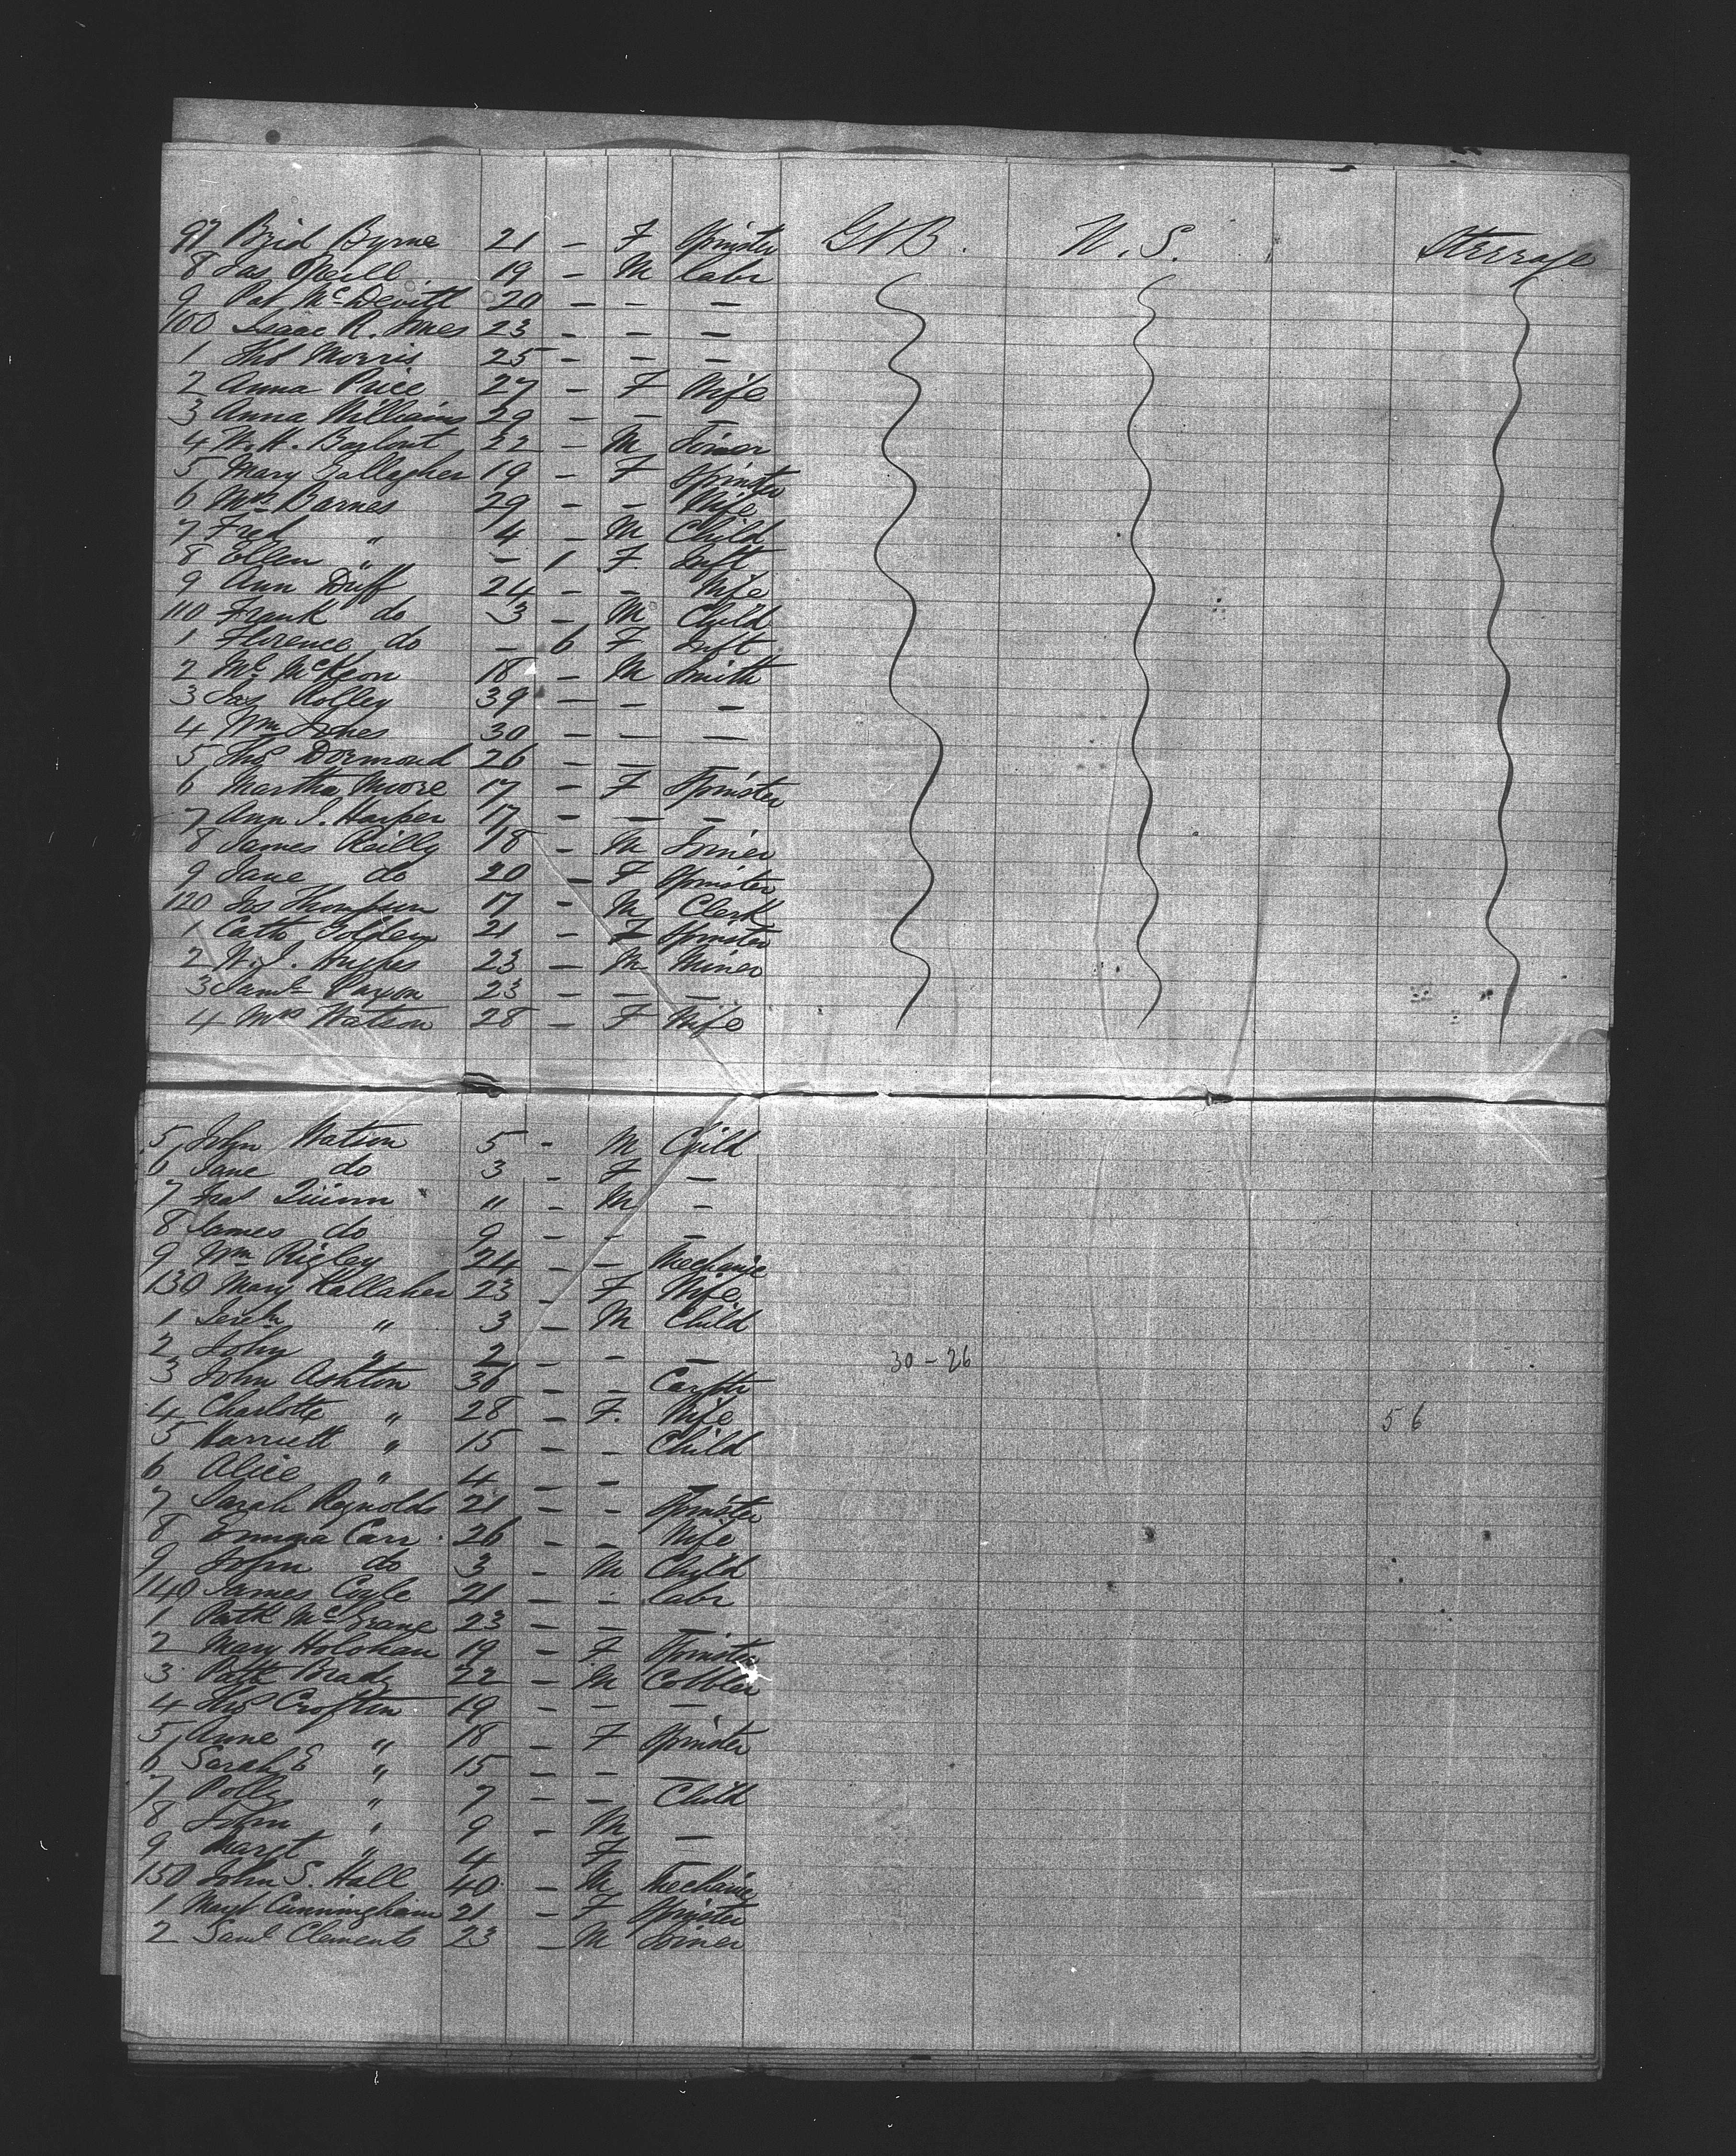 97 Brid Byrne 21 – F Spinster Gt B. U. S. Steerage
8 Jas Neill 19 – M Labr
9 Pat McDevitt 20 – – –
100 Isaac R. Jmes 23 – – –
1 Thos Morris 25 – – –
2 Anna Price 27 – F Wife
3 Anna Williams 29 – – –
4 W. H. 22 – M Joiner
5 Mary Gallagher 19 – F Spinster
6 Mrs Barnes 29 – – Wife
7 Fred " 4 M Child
8 Ellen " – 1 F. Inft
9 Ann Duff 24 – – Wife
110 Frank do 3 – M Child
1 Florence do – 6 F Inft
2 Ml McKeon 18 – M Smith
3 Jas Rolley 39 – – –
4 Wm Jones 30 – – –
5 Thos Dormond 26 – – –
6 Martha Moore 17 – F Spinster
7 Ann J. Harper 17 – – –
8 James Reilly 18 – M Joiner
9 Jane do 20 – F Spinster
120 Jos Thompson 17 – M Clerk
1 Cath Golden 21 – F Spinster
2 W. J. Hughes 23 – M Miner
3 Saml Paxon 23 – – –
4 Mrs Watson 28 – F Wife
5 John Watson 5 – M Child
6 Jane do 3 – F –
7 Quinn " – M –
8 James do 9 – – –
9 Wm Rigley 24 – – Mechanic
130 Mary Kallaher 23 – F Wife
1 Jereh " 3 – M Child
2 John " 2 – – – 30 – 26
3 John Ashton 36 – – Carptr
4 Charlotte " 28 – F. Wife 56
5 Harriett " 15 – – Child
6 Alice " 4 – – –
7 Sarah Reynolds 21 – – Spinster
8 Emma Carr 26 – – Wife
9 John do 3 – M Child
140 James Coyle 21 – – Labr
1 Patk McGrane 23 – – –
2 Mary Holohan 19 – F Spinster
3 Patk Brady 22 – M Cobbler
4 Thos Crofton 19 – – –
5 Anne " 18 – F Spinster
6 Sarah E " 15 – – –
7 Polly " 7 – – Child
8 John " 9 – M –
9 Margt " 4 F
150 John S. Hall 40 – M Mechanic
1 Margt Cunningham 21 – F Spinster
2 Saml Clements 23 – M Joiner